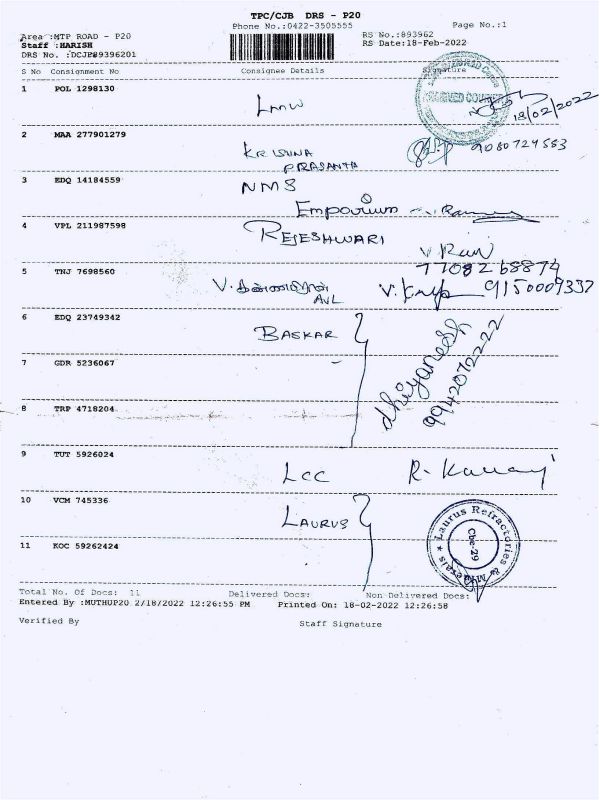 TPC/CJB DRS - P20
Phone No.:0422-3505555
Page No.:1
Area :MTP ROAD - P20
RS No.:893962
Staff :HARISH
RS Date:18-Feb-2022
DRS No. :DCJP89396201
S No Consignment No Consignee Details Signature
1 POL 1298130
LMW
18/02/2022
2 MAA 277901279
KRISHNA
PRASANTA
9080724553
3 EDQ 14184559
NMS
Emporium
4 VPL 211987598
REJESHWARI
V. Ravi
7708268874
5 TNJ 7698560
V.
AVL
9150009337
6 EDQ 23749342
BASKAR
dhiyaneesh
9942072222
7 GDR 5236067
8 TRP 4718204
9 TUT 5926024
LCC
10 VCM 745336
LAURUS
Laurus Refractories &
Cbe-29
11 KOC 59262424
Total No. Of Docs: 11 Delivered Docs: Non Delivered Docs:
Entered By :MUTHUP20 2/18/2022 12:26:55 PM Printed On: 18-02-2022 12:26:58
Verified By Staff Signature